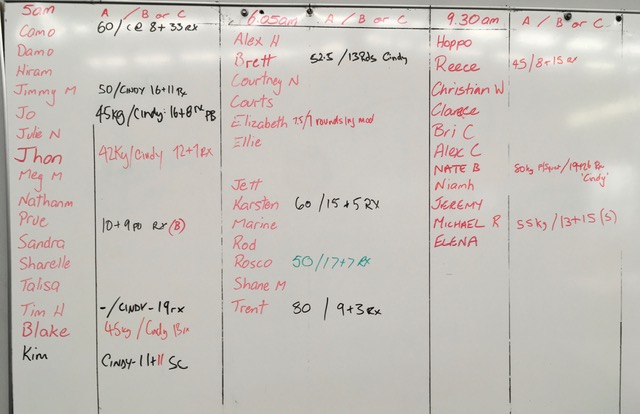 5am A / B or C
Camo 60/ C@ 8+33 RX
Damo
Hiram
Jimmy M 50/CINDY 16+11 Rx
Jo 45kg/Cindy: 16+8 rx PB
Jule N
Jhon 42Kg/Cindy 12+1 RX
Meg M
Nathanm
Prue 10+9 PO RX (B)
Sandra
Sharelle
Talisa
Tim H -/CINDY-19rx
Blake 45kg/Cindy 13rx
Kim CINDY-11+11 SC
6.05am A / B or C
Alex H
Brett 52.5 /13Rds Cindy
Courtney N
Courts
Elizabeth 7.5/7 rounds ing mod
Ellie
Jett
Karsten 60 /15+5 RX
Marine
Rod
Rosco 50/17+7 Rx
Shane M
Trent 80 / 9+3 Rx
9.30am A / B or C
Hoppo
Reece 45/8+15 rx
Christian W
Claree
Bri C
Alex C
NATE B 80kg /19+26 Rx
'Cindy'
Niamh
JEREMY
MICHAEL R 55kg/13+15 (S)
ELENA